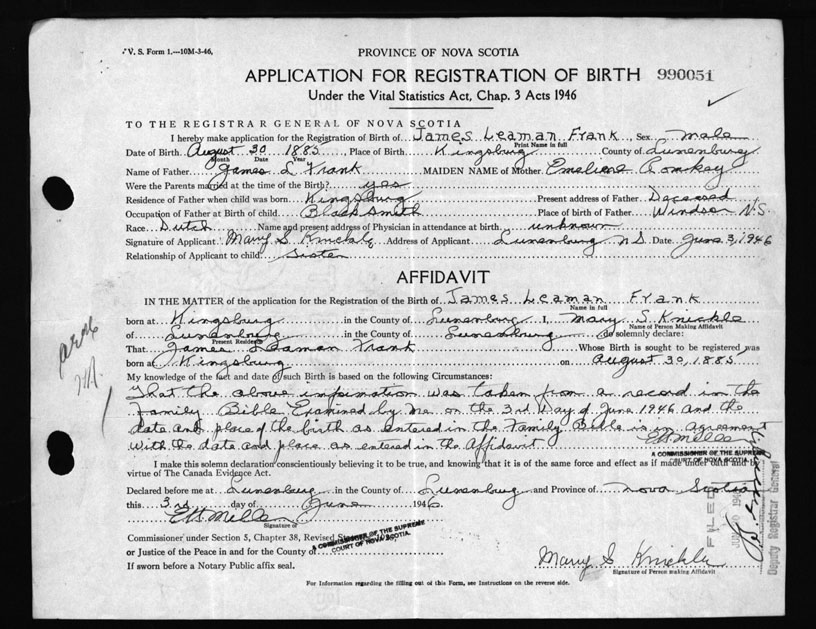 V. S. Form 1.—10M-3-46.
PROVINCE OF NOVA SCOTIA
APPLICATION FOR REGISTRATION OF BIRTH 990051
Under the Vital Statistics Act, Chap. 3 Acts 1946
TO THE REGISTRAR GENERAL OF NOVA SCOTIA
I hereby make application for the Registration of Birth of James Leaman Frank, Sex male
Print Name in full
Date of Birth August 30 1885, Place of Birth Kingsburg County of Lunenburg
Month Date Year
Name of Father James L Frank MAIDEN NAME of Mother Emeliene Romkey
Were the Parents married at the time of the Birth? yes
Residence of Father when child was born Kingsburg Present address of Father Deceased
Occupation of Father at Birth of child Blacksmith Place of birth of Father Windsor N.S.
Race Dutch Name and present address of Physician in attendance at birth unknown
Signature of Applicant Mary S Knickle Address of Applicant Lunenburg N S Date June 3, 1946
Relationship of Applicant to child sister
AFFIDAVIT
IN THE MATTER of the application for the Registration of the Birth of James Leaman Frank
Name in full
born at Kingsburg in the County of Lunenburg I, Mary S Knickle
Name of Person Making Affidavit
of Lunenburg in the County of Lunenburg do solemnly declare:
Present Residence
That James Leaman Frank Whose Birth is sought to be registered was
born at Kingsburg on August 30, 1885
My knowledge of the fact and date of such Birth is based on the following Circumstances:
That the above information was taken from a record in the
Family Bible Examined by me on the 3rd Day of June 1946 and the
date and place of the birth as entered in the Family Bible is in agreement
with the date and place as entered in the Affidavit
A COMMISSIONER OF THE SUPREME
COURT OF NOVA SCOTIA
I make this solemn declaration conscientiously believing it to be true, and knowing that it is of the same force and effect as if made under oath and by
virtue of The Canada Evidence Act.
Declared before me at Lunenburg in the County of Lunenburg and Province of Nova Scotia
this 3rd day of June 1946
Signature of
Commissioner under Section 5, Chapter 38, Revised
A COMMISSIONER OF THE SUPREME
COURT OF NOVA SCOTIA.
or Justice of the Peace in and for the County of
If sworn before a Notary Public affix seal.
Mary S Knickle
Signature of Person making Affidavit
FILED
Deputy Registrar General
For Information regarding the filling out of this Form, see Instructions on the reverse side.